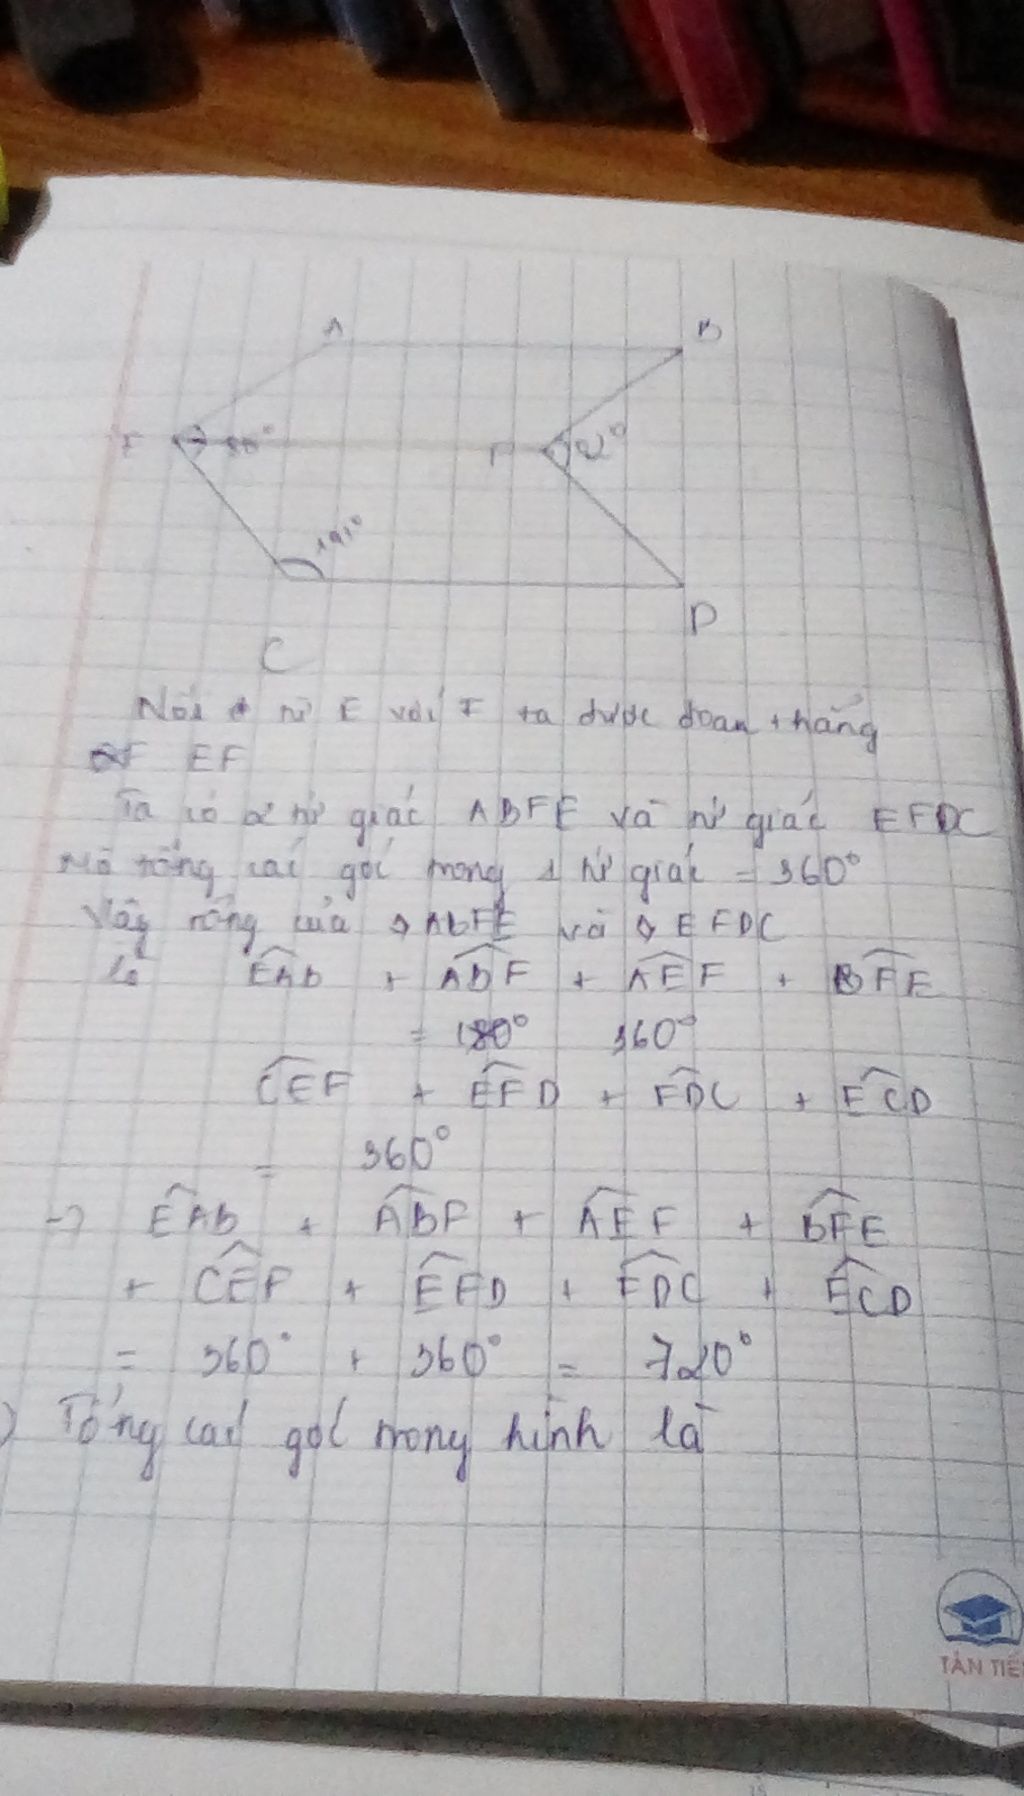 A B
E 80° F 92°
D
C
Nối từ E với F ta được đoạn thẳng
EF
Ta có 2 tứ giác ABFE và tứ giác EFDC
Mà tổng các góc trong 1 tứ giác = 360°
Vậy tổng của ◊ ABFE và ◊ EFDC
là EAB + ABF + AEF + BFE
= 180° 360°
CEF + EFD + FDC + ECD
= 360°
-> EAB + ABF + AEF + BFE
+ CEF + EFD + FDC + ECD
= 360° + 360° = 720°
) Tổng các góc trong hình là
TÂN TIẾ